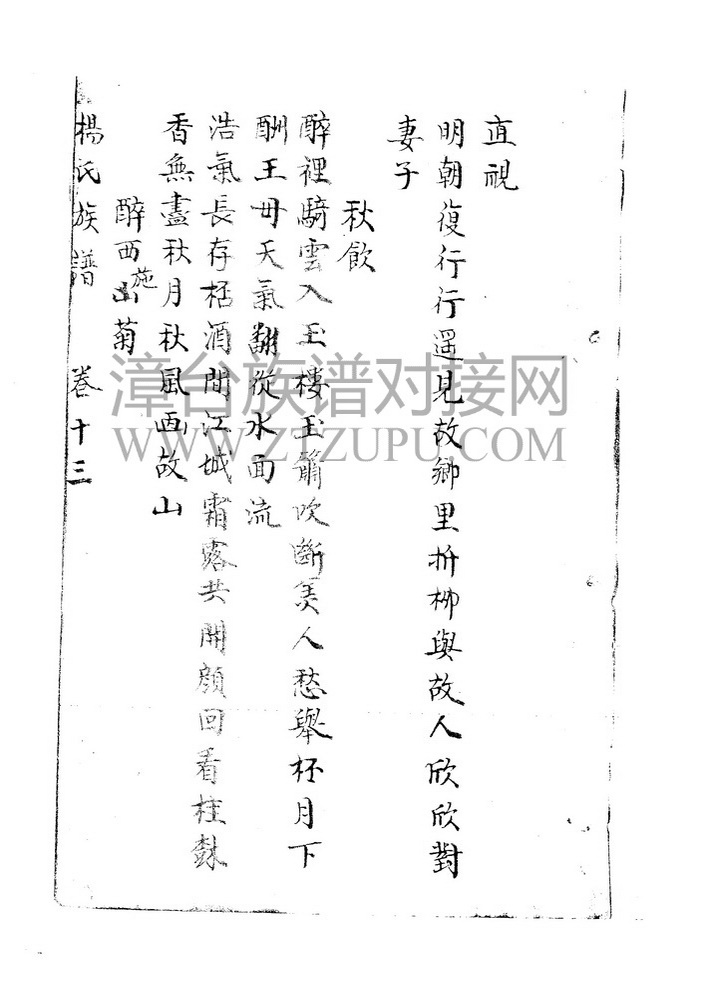 直視
明朝復行行遥見故鄉里折柳與故人欣欣對
妻子
秋飲
醉裡騎雲入玉樓玉簫吹斷美人愁舉杯月下
酬王母天氣翻從水面流
浩氣長存栝酒間江城霜露共開顏回看桂
香無盡秋月秋風画故山
醉西施山菊
楊氏族譜 卷十三
漳台族谱对接网
WWW.ZTZUPU.COM